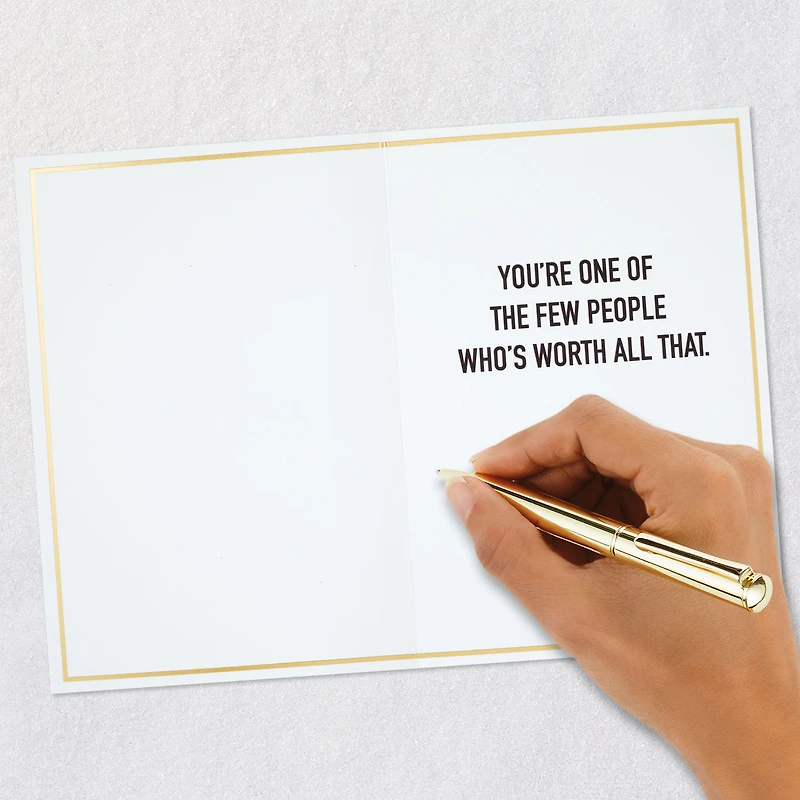 YOU'RE ONE OF
THE FEW PEOPLE
WHO'S WORTH ALL THAT.